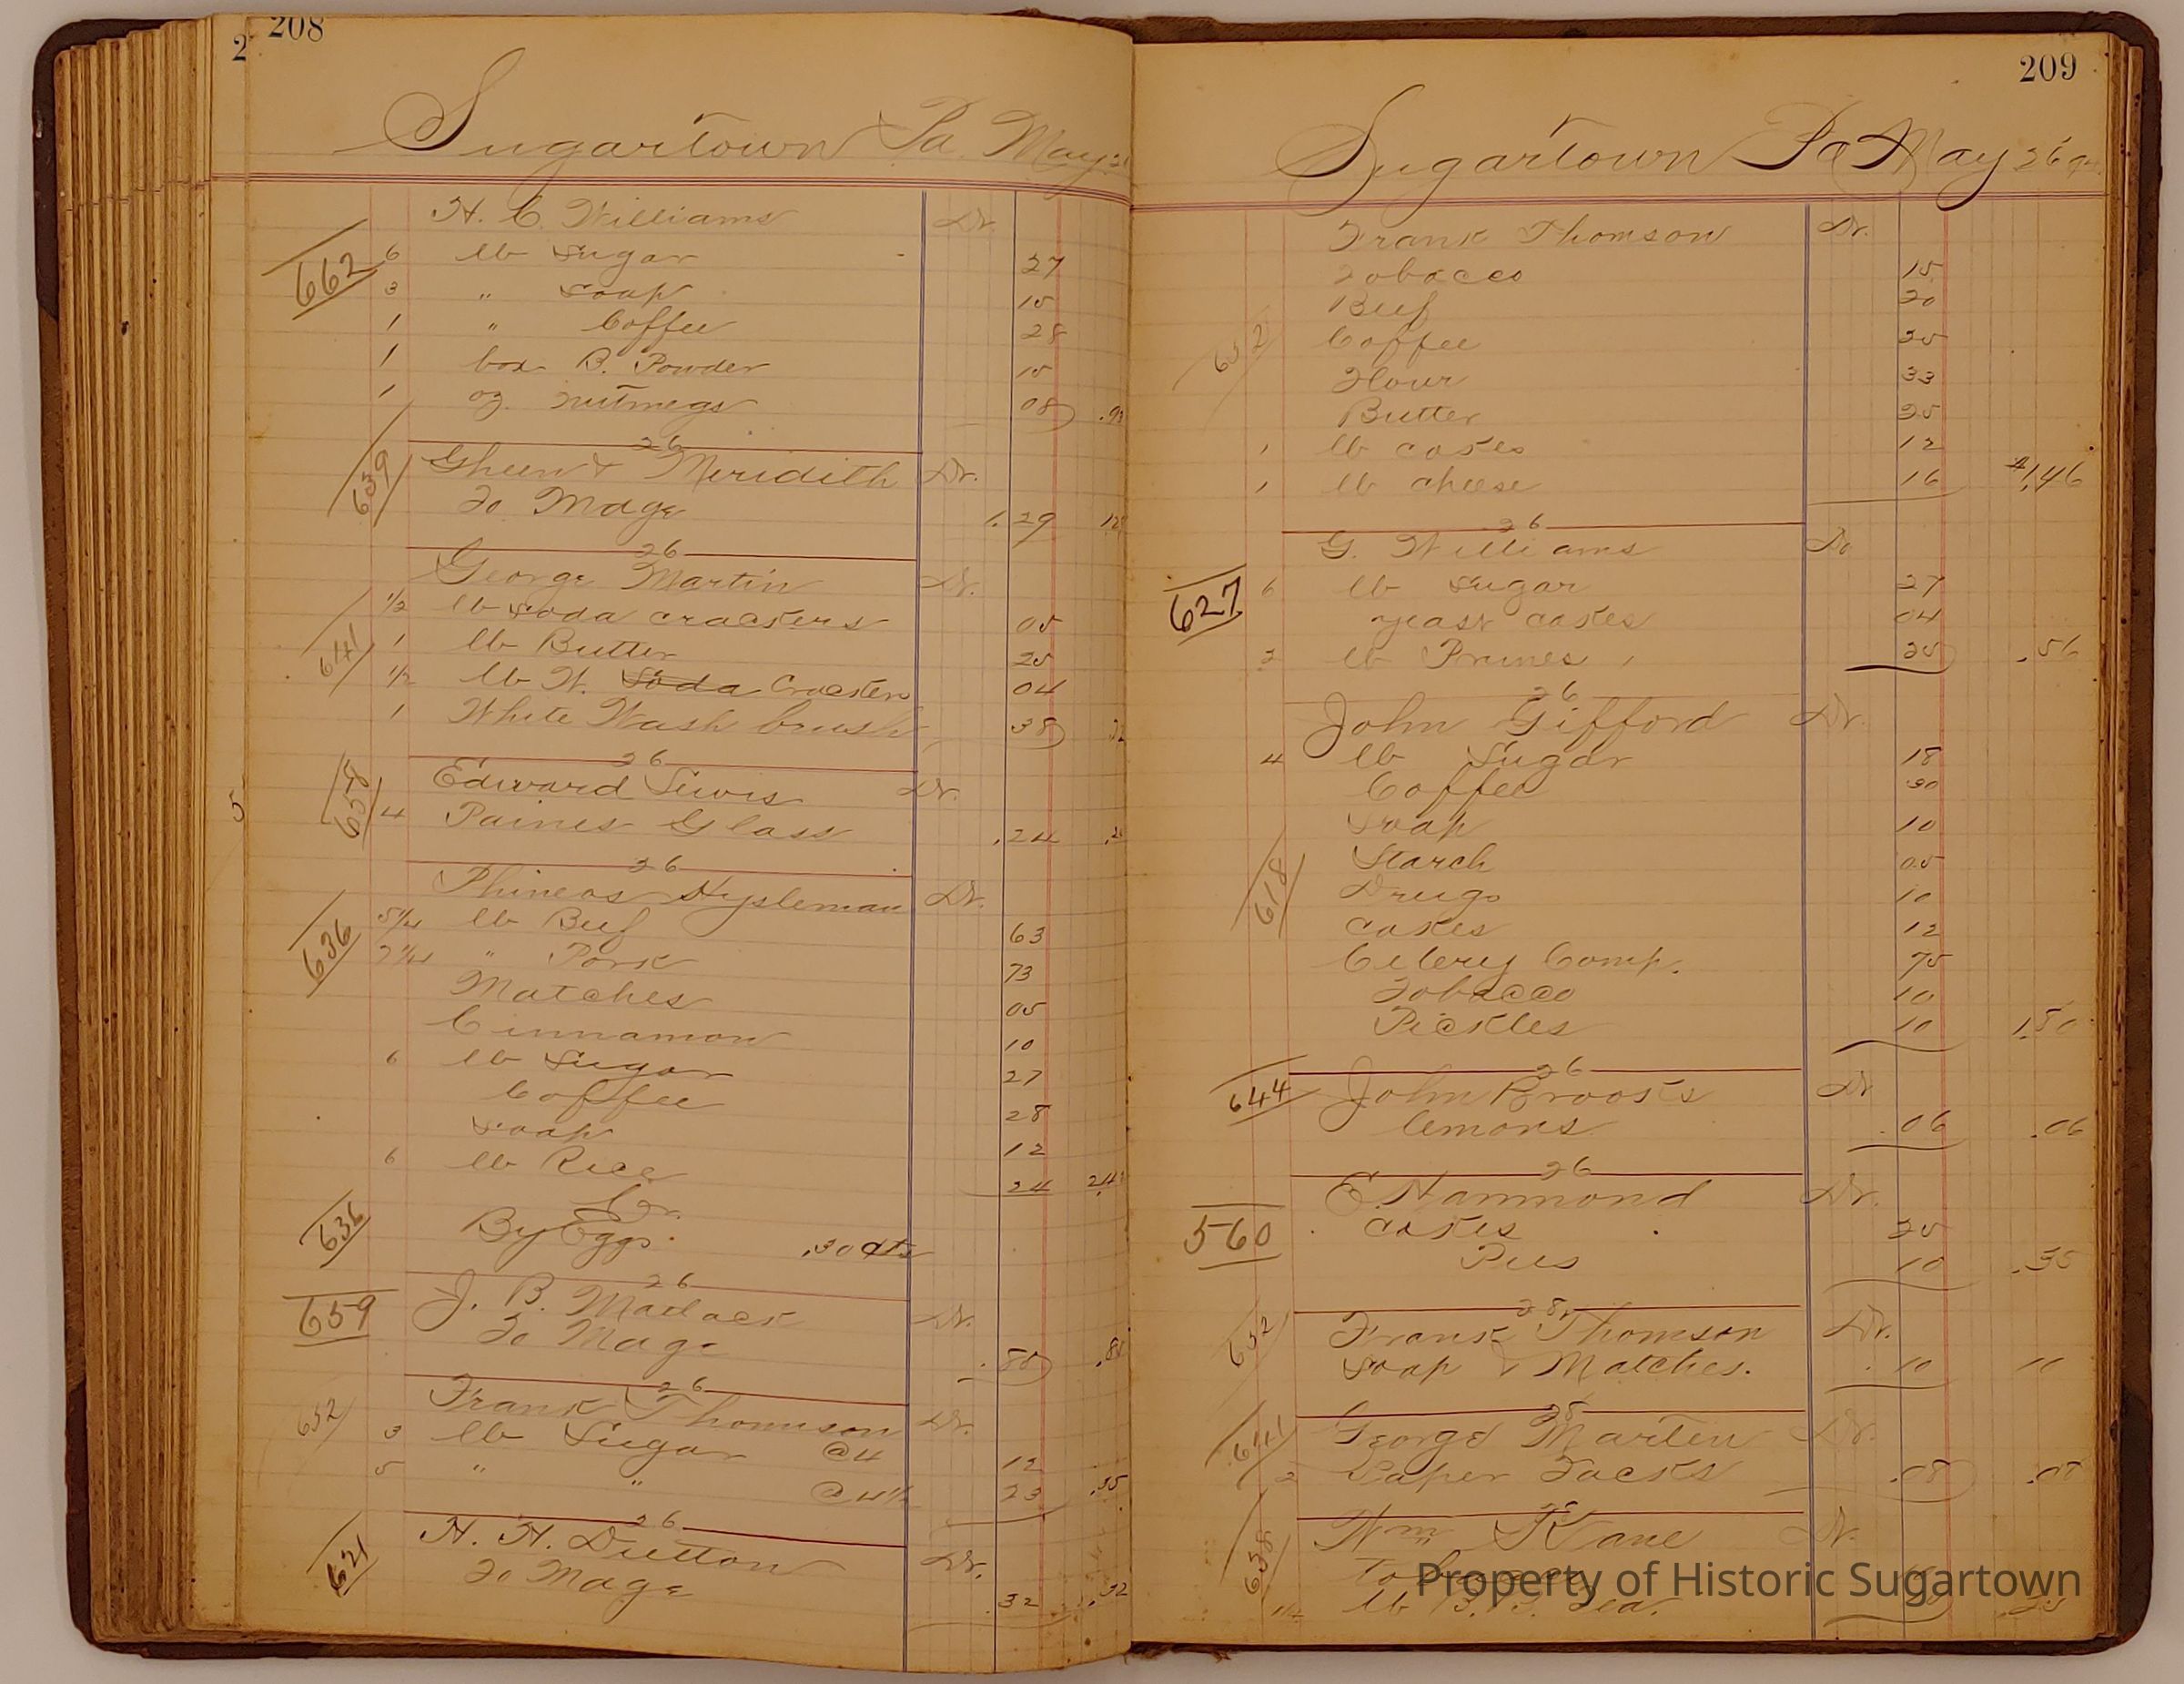 2
208
Sugartown Pa May
H. C. Williams Dr.
662 6 lb Sugar 27
3 " Soap 15
1 " Coffee 28
1 box B. Powder 15
1 oz. nutmegs 08 .93
26
639 Gheen & Meridith Dr.
To Mdge 1.29
26
George Martin Dr.
1/2 lb soda crackers 05
641 1 lb Butter 25
1/2 lb W. Soda Crackers 04
1 White Wash brush 38
26
5 658 Edward Lewis Dr.
4 Paines Glass .24
26
Phineas Hysleman Dr.
636 5 1/4 lb Beef 63
7 1/4 " Pork 73
Matches 05
Cinnamon 10
6 lb Sugar 27
Coffee 28
Soap 12
6 lb Rice 24
Cr.
636 By Eggs .30 cts
26
659 J. B. Matlack Dr.
To Mdge
26
652 Frank Thomson Dr.
3 lb Sugar @ 4 12
5 " " @ 4 1/2 23 .35
26
621 H. H. Dutton Dr.
To Mdge .32 .32
209
Sugartown Pa May 26
Frank Thomson Dr.
Tobacco 15
Beef 20
652 Coffee
Flour 33
Butter 25
1 lb cakes 12
1 lb cheese 16 $1.46
26
G. Williams Dr
627 6 lb Sugar 27
yeast cakes 04
2 lb Prunes 25 .56
26
John Gifford Dr.
4 lb Sugar 18
Coffee 30
Soap 10
Starch 05
618 Drugs 10
cakes 12
Celery Comp. 75
Tobacco 10
Pickles 10 1.80
26
644 John Brooks Dr
lemons .06 .06
26
E. Hammond Dr.
560 cakes 25
Pies 10 .35
28
652 Frank Thomson Dr.
Soap & Matches. .10 10
28
641 George Marten Dr.
2 Paper Tacks .08 .08
28
638 Wm Kane Dr.
Tobacco
1/4 lb B. B. Tea.
Property of Historic Sugartown